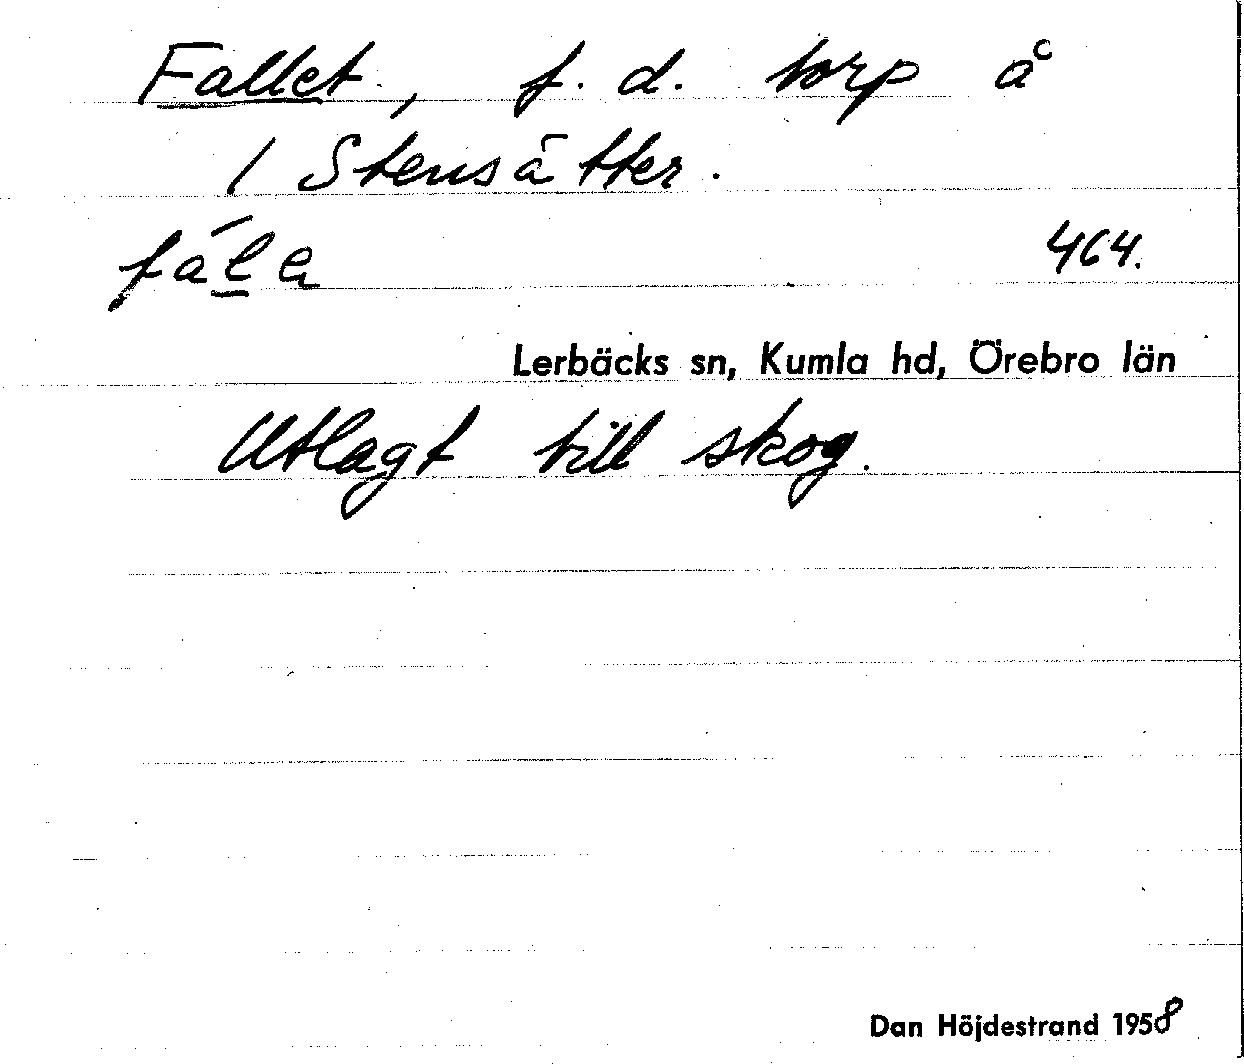 Fallet, f. d. torp å
1 Stensätter.
fál̲a 464.
Lerbäcks sn, Kumla hd, Örebro län
Utlagt till skog.
Dan Höjdestrand 1958